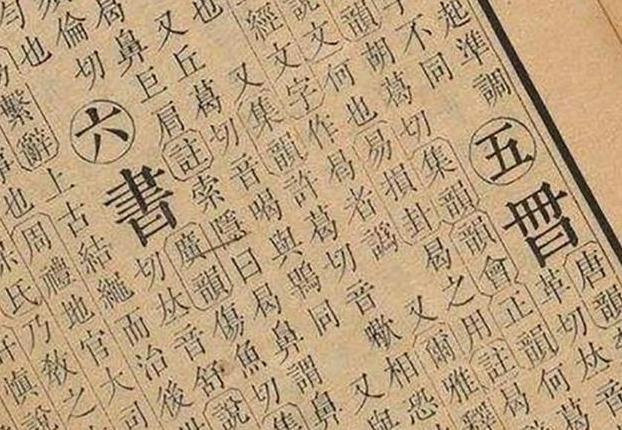 起準調
子不同
五
𠕋
唐韻
革切𠀤音
韻胡葛切集韻韻會正韻何葛
說文何也易損卦曷之用註曷
經文字作曷者譌 又爾雅釋
又集韻許葛切音歇相恐
也
又丘葛切音喝與鶡同 又與
曷鼻巨肩註索隱曰曷鼻謂鼻
也倫切
六
書
廣韻傷魚切集
切𠀤音舒說
繫辭上古結繩而治後
也周禮地官大司
氏乃敎之
慎說